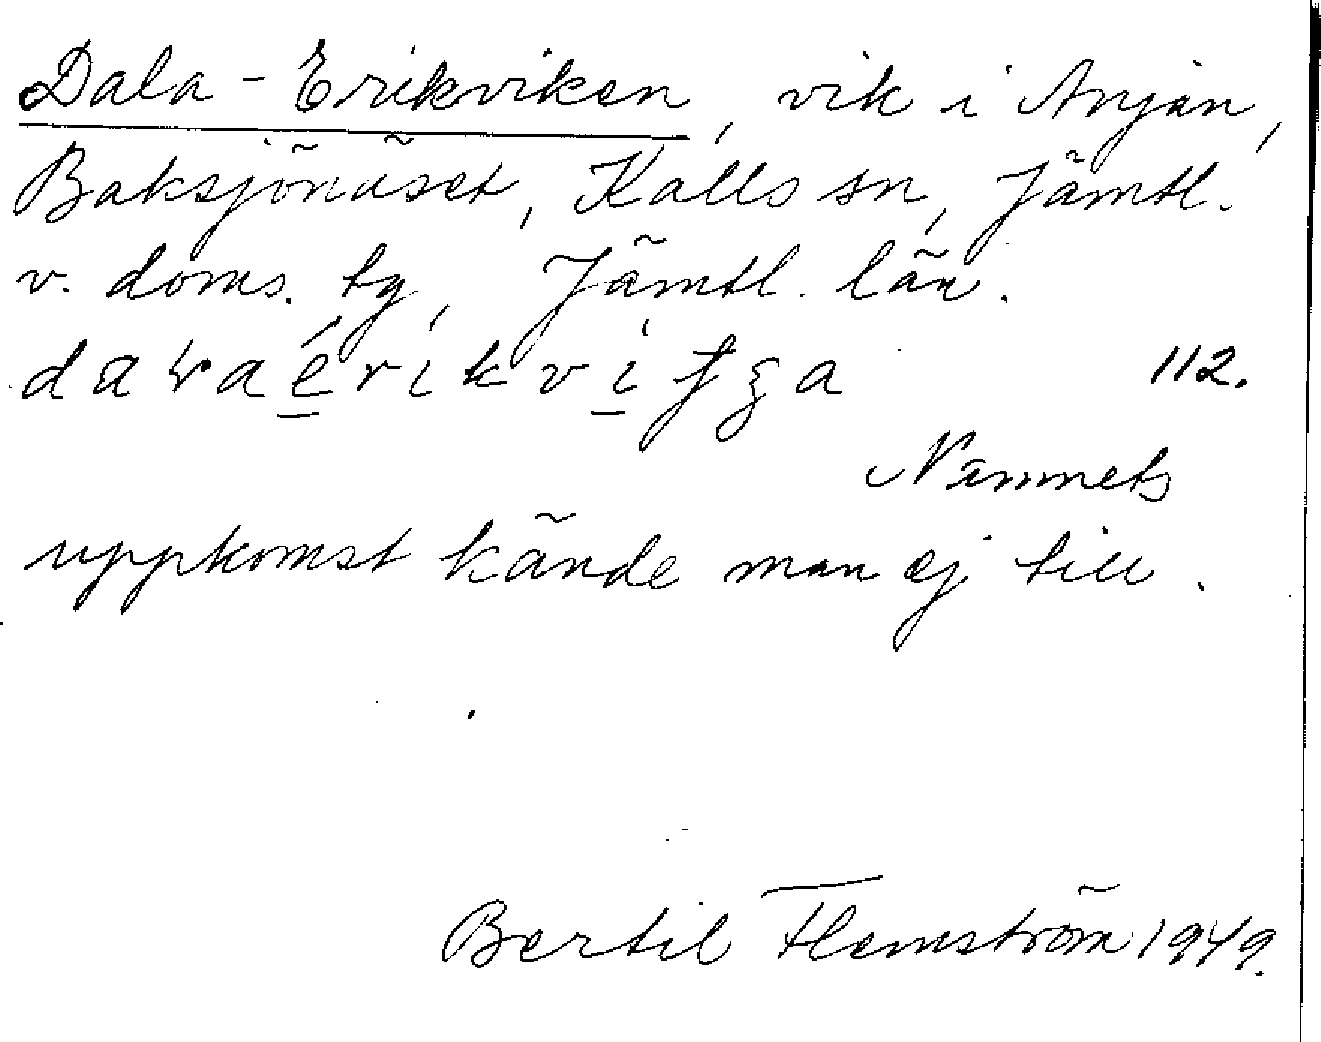 Dala-Erikviken, vik i Anjan,
Baksjönäset, Kalls sn, Jämtl.
v. doms. tg, Jämtl. län.
112.
Namnets
uppkomst kände man ej till.
Bertil Flemström 1949.